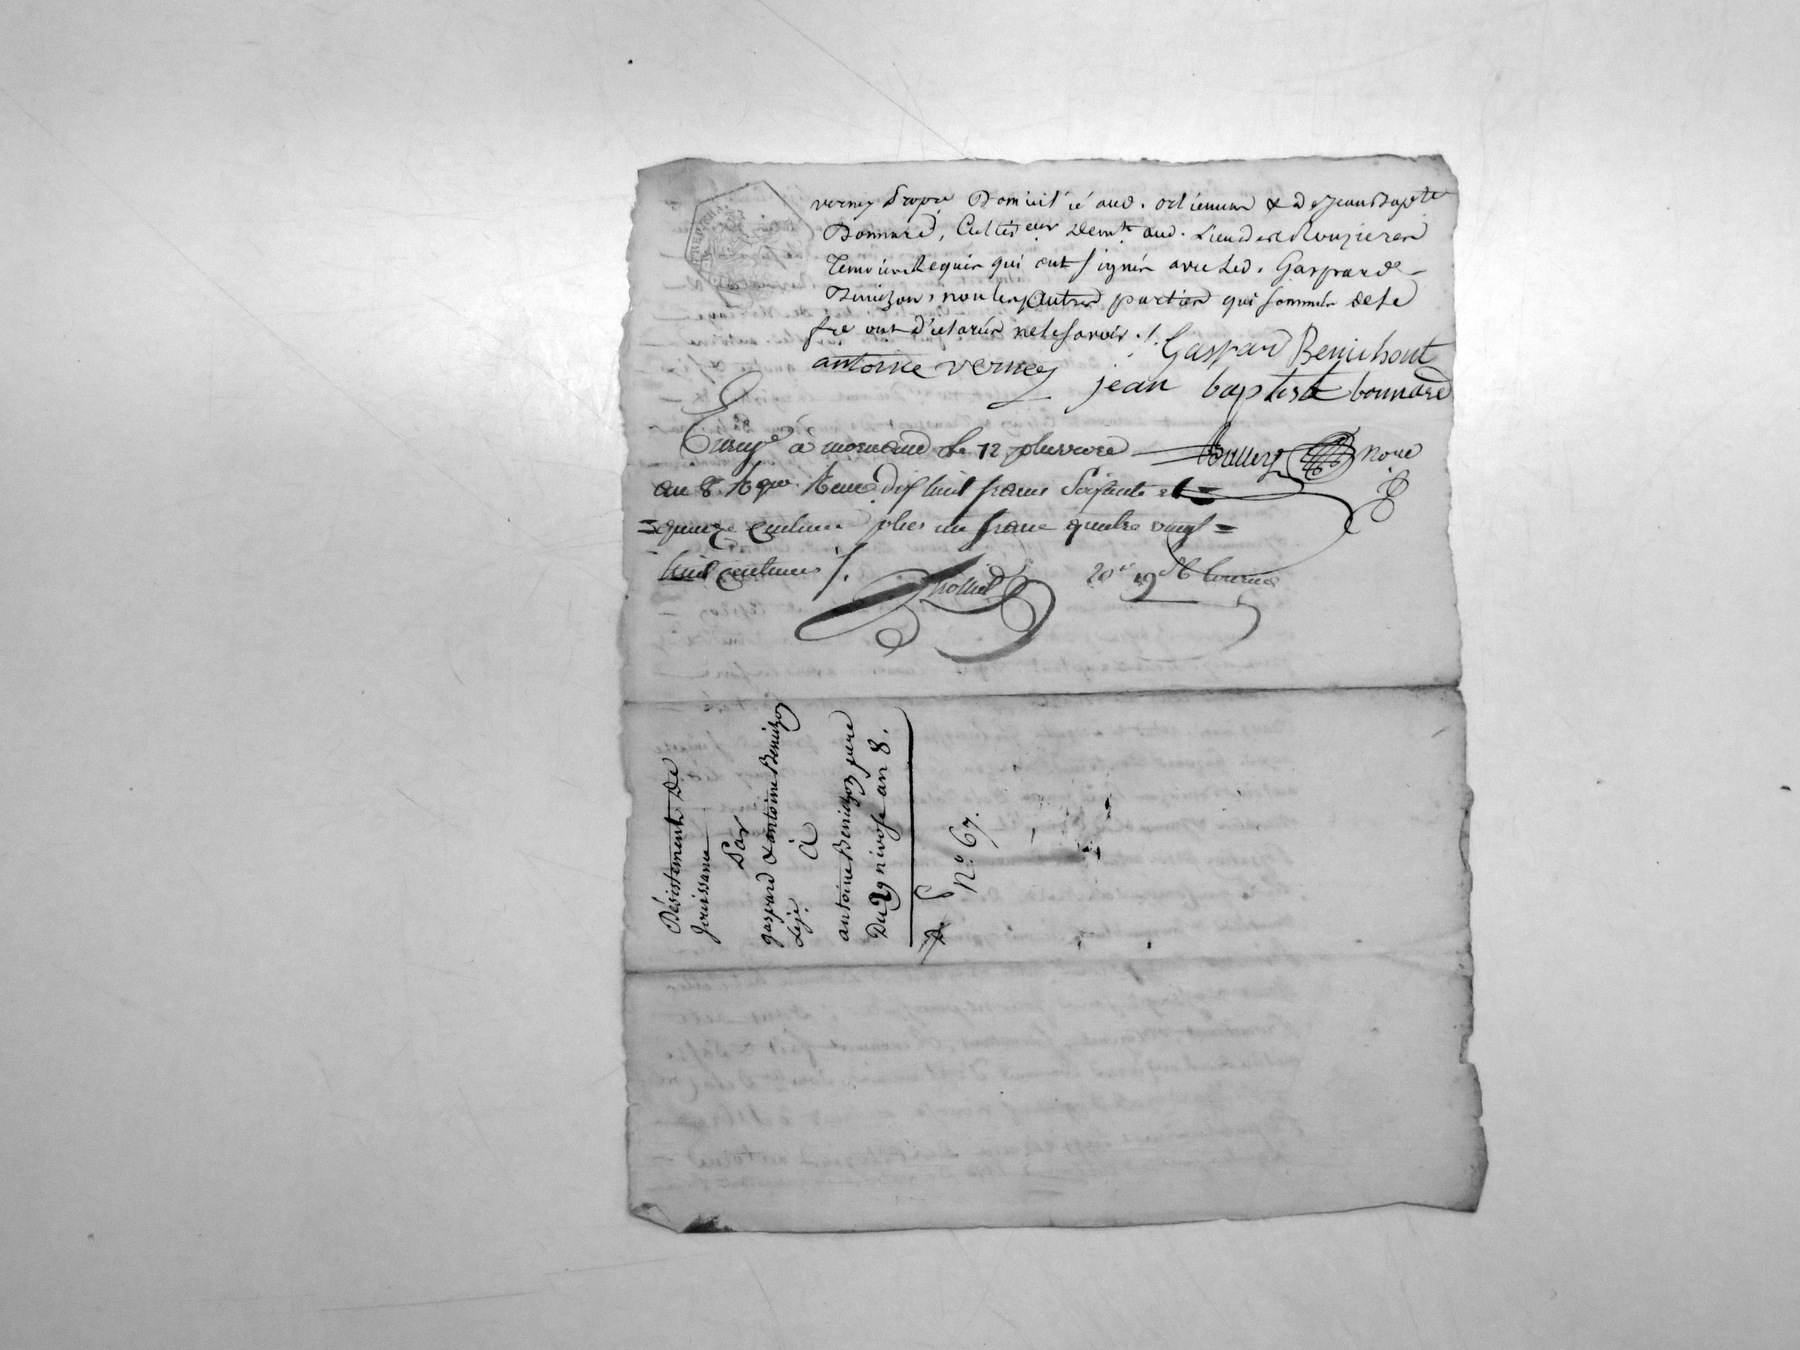 verney Propre Domicilié aud. & de Jean Bapte
Bonnard, Cultiteur Demt aud. Lieu des Rouzieres
Temoins Requis qui ont signés avec Led. Gaspard
Benizon, non les autres parties qui sommés de le
fre ont d'éclarés ne le savoir ./.
Gaspard Benichont
antoine verney jean baptiste bonnard
Enregé à mornand le 12 pluviose
an 8. Reçu dix huit francs Soixante et
quinze centimes plus un franc quatre vingt
huit centimes /.
Désistement De
Jouissance
Par
gaspard & antoine Benizon
à
antoine Benizon pere
Du 29 nivose an 8.
No. 67.